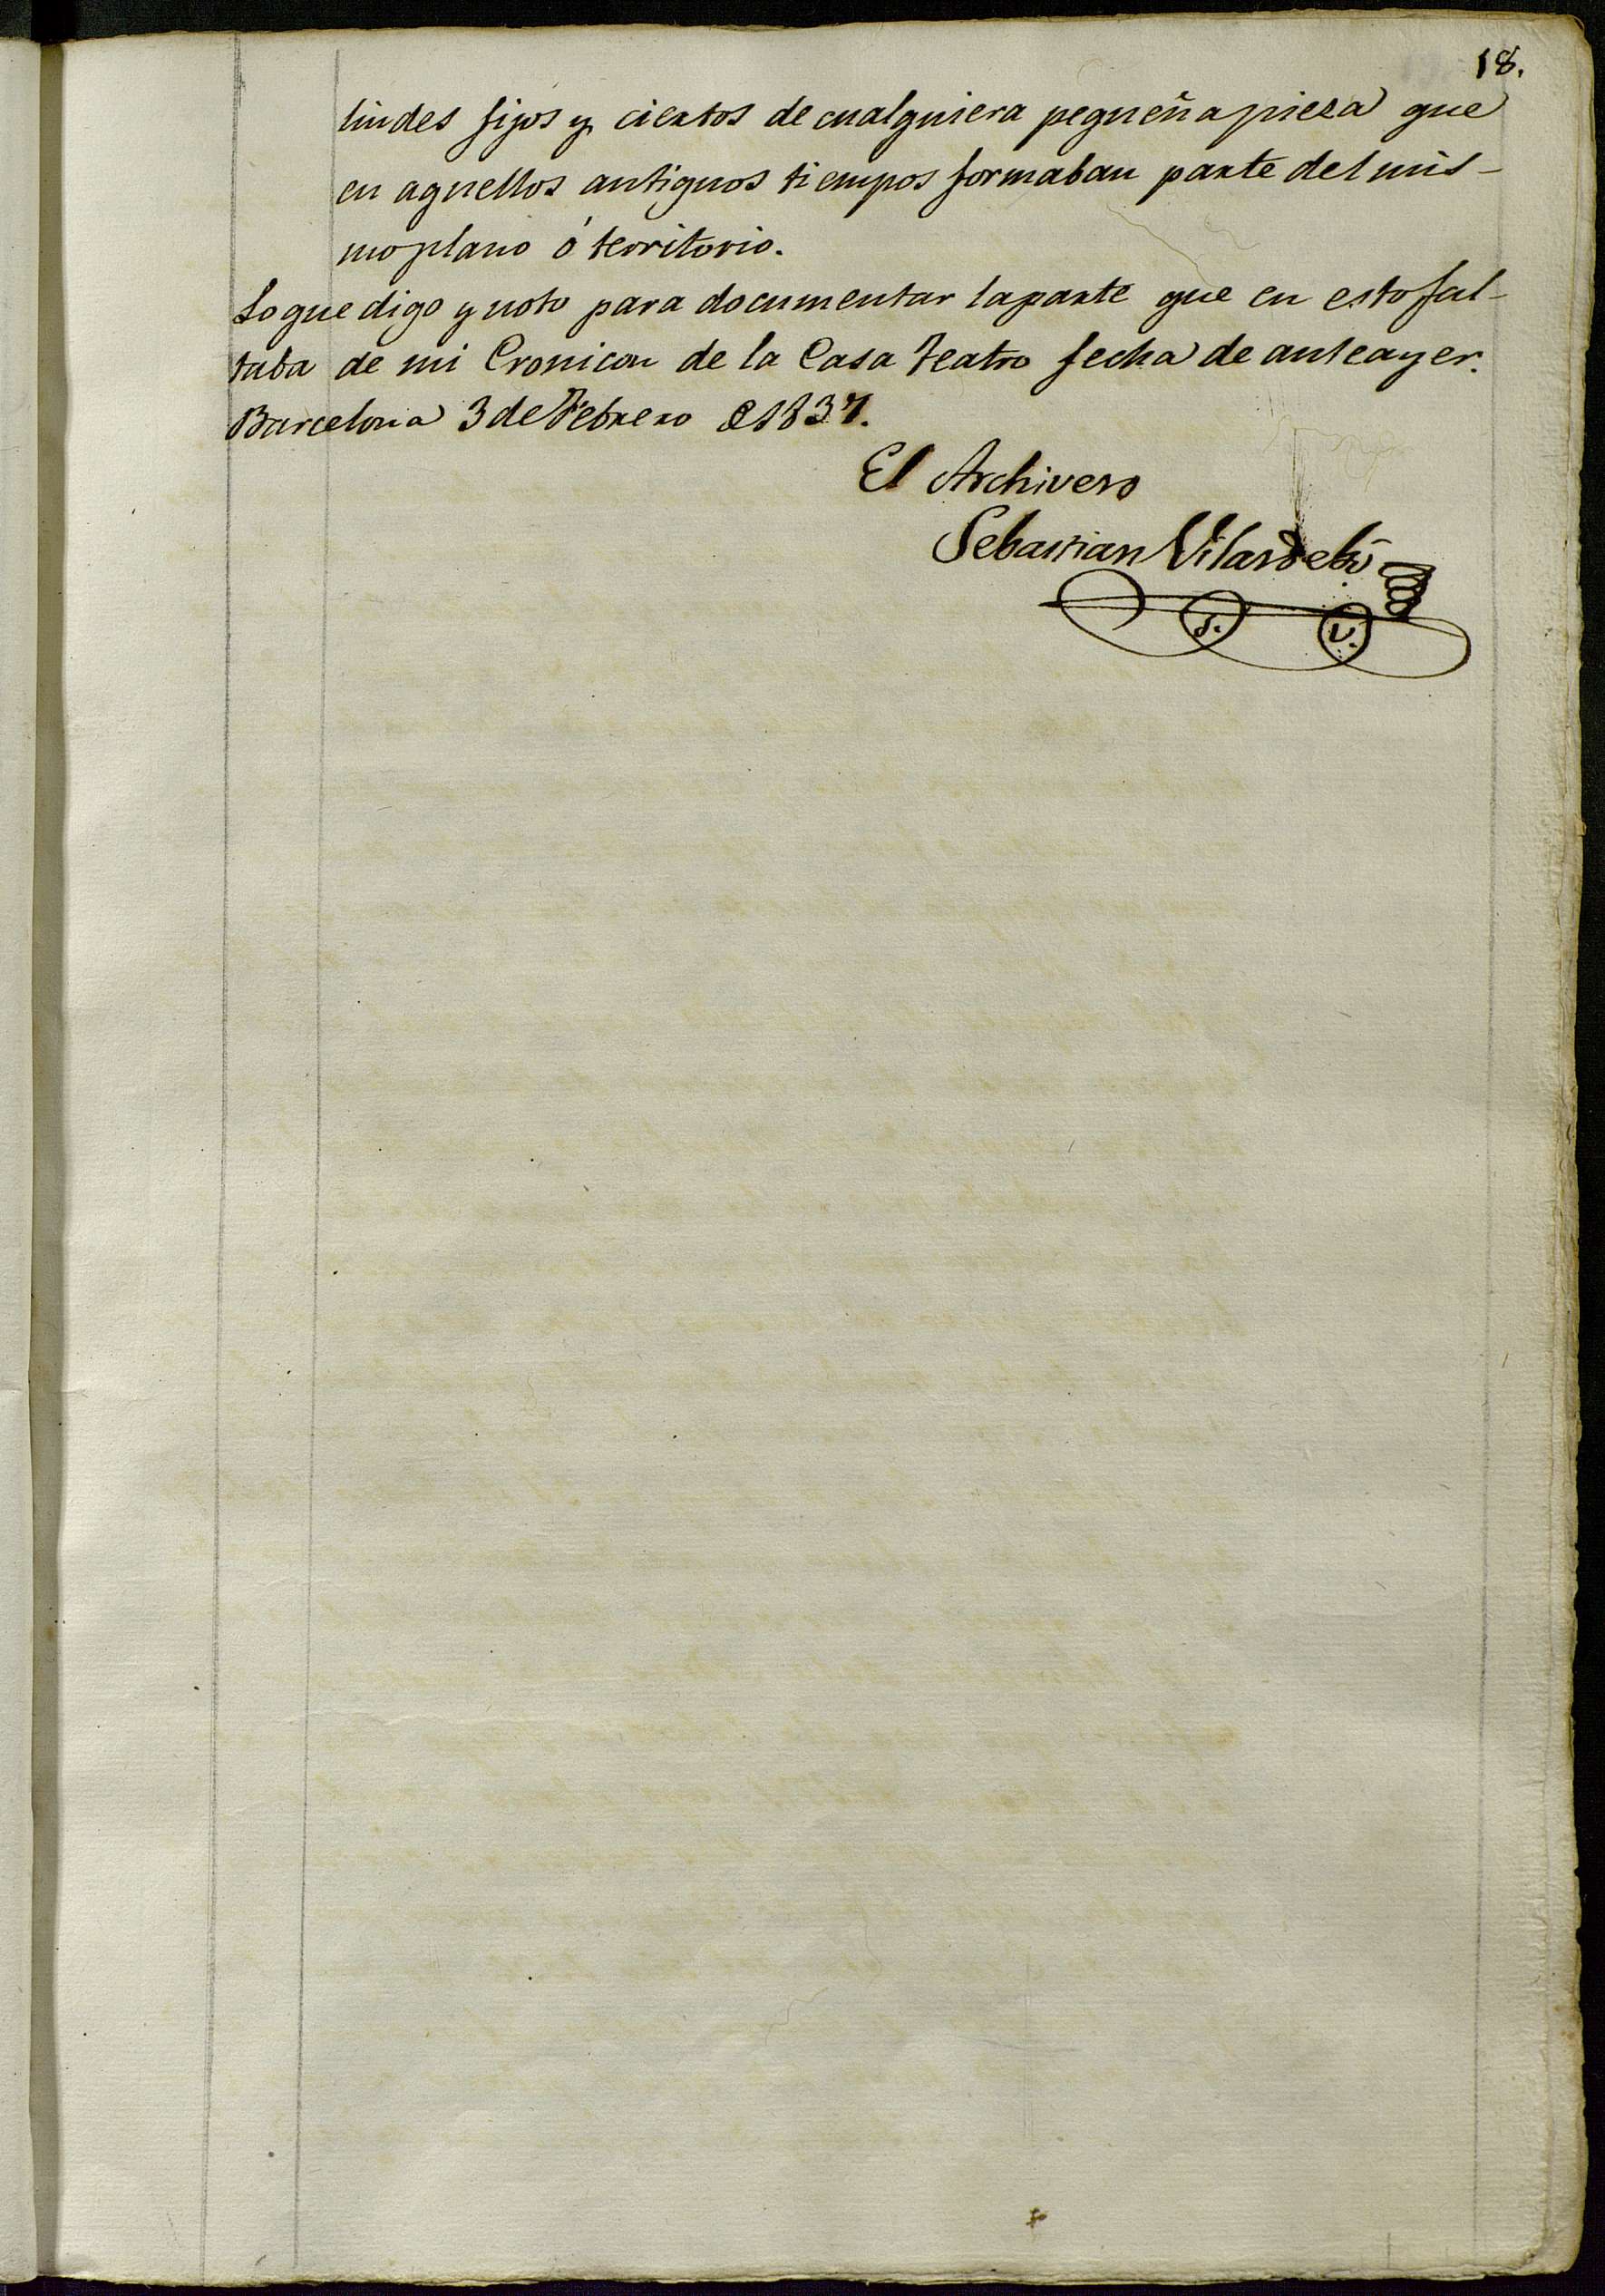 18.
lindes fijos y ciertos de cualquiera pequeña pieza que
en aquellos antiguos tiempos formaban parte del mis-
mo plano ó territorio.
Lo que digo y noto para documentar la parte que en esto fal-
taba de mi Cronicon de la Casa Teatro fecha de anteayer.
Barcelona 3 de Febrero de 1837.
El Archivero
Sebastian Vilardebó
S. V.